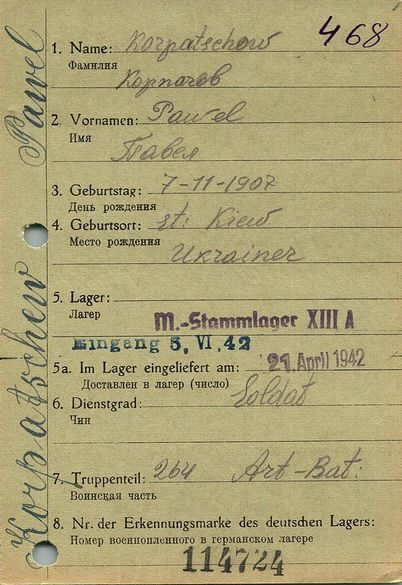 468
Korpatschew Pawel
1. Name: Korpatschow
Фамилия
Корпачов
2. Vornamen: Pawel
Имя
Павел
3. Geburtstag: 7-11-1907
День рождения
4. Geburtsort: st: Kiew
Место рождения
Ukrainer
5. Lager:
Лагер
M.-Stammlager XIII A
Eingang 5. VI. 42
21. April 1942
5a. Im Lager eingeliefert am:
Доставлен в лагер (число)
6. Dienstgrad: Soldat
Чин
7. Truppenteil: 264 Art-Bat:
Воинская часть
8. Nr. der Erkennungsmarke des deutschen Lagers:
Номер военнопленного в германском лагере
114724